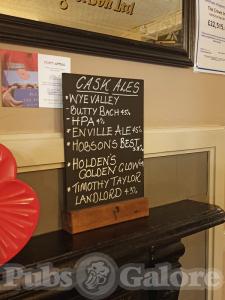 CASK ALES
WYE VALLEY
BUTTY BACH 4.5%
- HPA 4%
ENVILLE ALE 4.5%
HOBSONS BEST
3.8%
HOLDEN'S
GOLDEN GLOW
TIMOTHY TAYLOR
LANDLORD 4.3%
Pubs Galore